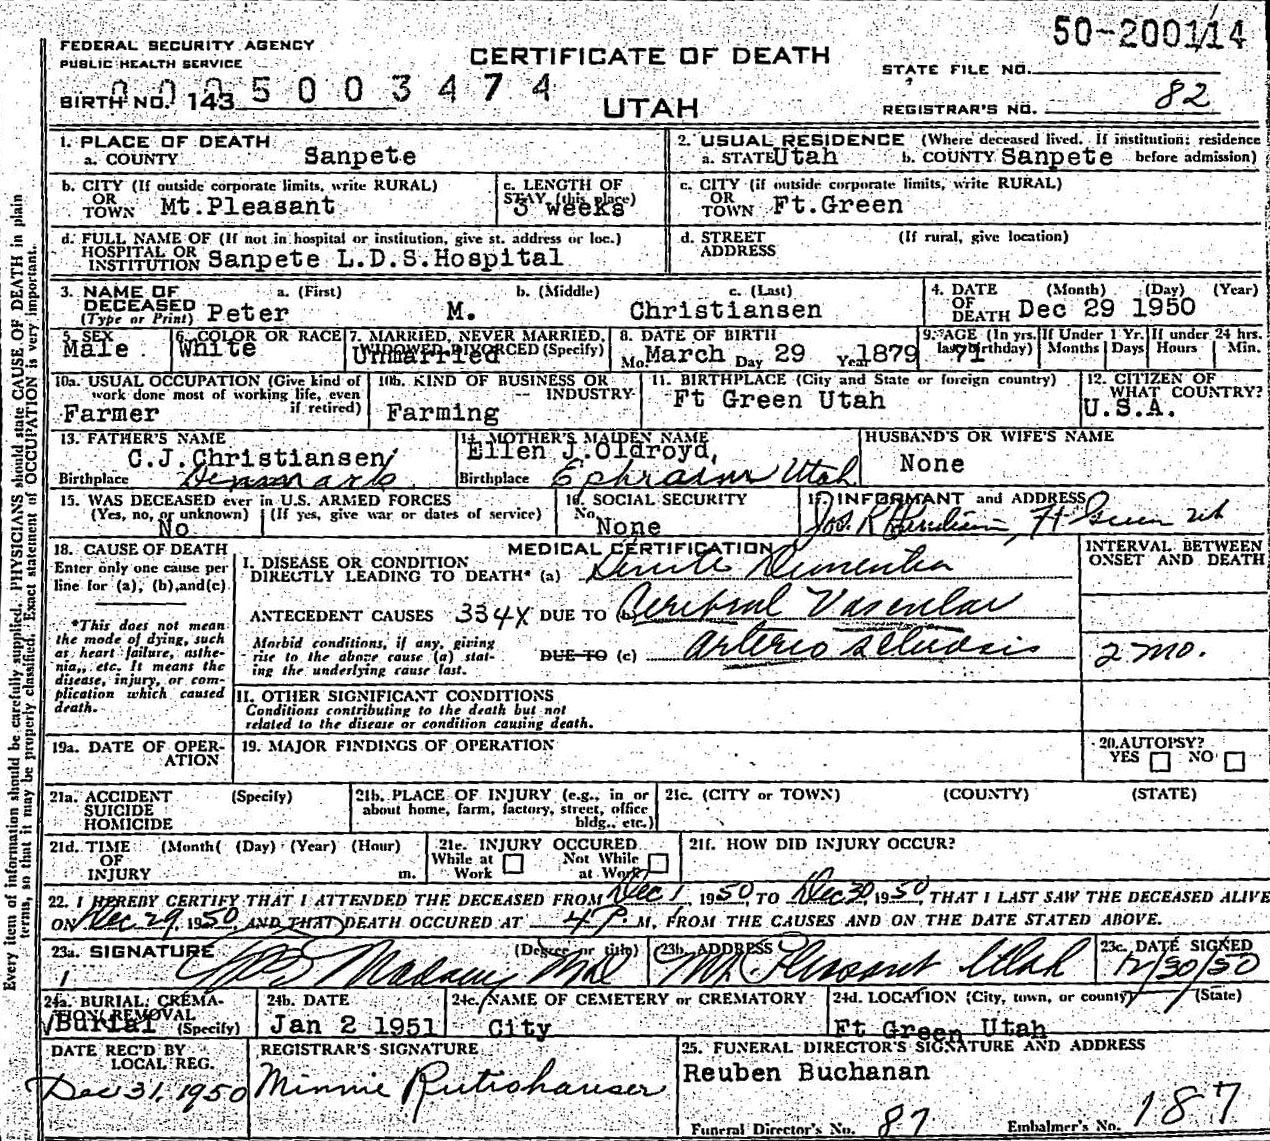 50-200114
FEDERAL SECURITY AGENCY
PUBLIC HEALTH SERVICE
CERTIFICATE OF DEATH
STATE FILE NO.
005003474
BIRTH NO. 143
UTAH
REGISTRAR'S NO. 82
1. PLACE OF DEATH
a. COUNTY Sanpete
2. USUAL RESIDENCE (Where deceased lived. If institution: residence
a. STATE Utah b. COUNTY Sanpete before admission)
b. CITY (If outside corporate limits, write RURAL)
OR
TOWN Mt.Pleasant
c. LENGTH OF
STAY (this place)
3 weeks
c. CITY (if outside corporate limits, write RURAL)
OR
TOWN Ft.Green
d. FULL NAME OF (If not in hospital or institution, give st. address or loc.)
HOSPITAL OR
INSTITUTION Sanpete L.D.S.Hospital
d. STREET (If rural, give location)
ADDRESS
3. NAME OF a. (First) b. (Middle) c. (Last)
DECEASED
(Type or Print) Peter M. Christiansen
4. DATE (Month) (Day) (Year)
OF
DEATH Dec 29 1950
5. SEX
Male
6. COLOR OR RACE
White
7. MARRIED, NEVER MARRIED,
WIDOWED, DIVORCED (Specify)
Unmarried
8. DATE OF BIRTH
Mo. March Day 29 Year 1879
9. AGE (In yrs. last birthday) 71
If Under 1 Yr. Months Days
If under 24 hrs. Hours Min.
10a. USUAL OCCUPATION (Give kind of
work done most of working life, even
if retired)
Farmer
10b. KIND OF BUSINESS OR
INDUSTRY
Farming
11. BIRTHPLACE (City and State or foreign country)
Ft Green Utah
12. CITIZEN OF
WHAT COUNTRY?
U.S.A.
13. FATHER'S NAME
C.J.Christiansen
Birthplace Denmark
14. MOTHER'S MAIDEN NAME
Ellen J.Oldroyd,
Birthplace Ephraim Utah
HUSBAND'S OR WIFE'S NAME
None
15. WAS DECEASED ever in U.S. ARMED FORCES
(Yes, no, or unknown) (If yes, give war or dates of service)
No
16. SOCIAL SECURITY
No.
None
17. INFORMANT and ADDRESS
Jos. K Ft Green Ut
18. CAUSE OF DEATH
Enter only one cause per
line for (a), (b), and (c)
*This does not mean
the mode of dying, such
as heart failure, asthe-
nia,, etc. It means the
disease, injury, or com-
plication which caused
death.
MEDICAL CERTIFICATION
I. DISEASE OR CONDITION
DIRECTLY LEADING TO DEATH* (a) Senile Dementia
ANTECEDENT CAUSES 334X DUE TO (b) Cerebral Vascular
Morbid conditions, if any, giving
rise to the above cause (a) stat-
ing the underlying cause last.
DUE TO (c) Arterio sclerosis
INTERVAL BETWEEN
ONSET AND DEATH
2 mo.
II. OTHER SIGNIFICANT CONDITIONS
Conditions contributing to the death but not
related to the disease or condition causing death.
19a. DATE OF OPER-
ATION
19. MAJOR FINDINGS OF OPERATION
20. AUTOPSY?
YES NO
21a. ACCIDENT (Specify)
SUICIDE
HOMICIDE
21b. PLACE OF INJURY (e.g., in or
about home, farm, factory, street, office
bldg., etc.)
21c. (CITY or TOWN) (COUNTY) (STATE)
21d. TIME (Month( (Day) (Year) (Hour)
OF
INJURY m.
21e. INJURY OCCURED
While at Work Not While at Work
21f. HOW DID INJURY OCCUR?
22. I HEREBY CERTIFY THAT I ATTENDED THE DECEASED FROM Dec 1, 1950, TO Dec 30, 1950, THAT I LAST SAW THE DECEASED ALIVE
ON Dec 29, 1950, AND THAT DEATH OCCURED AT 4 P. M, FROM THE CAUSES AND ON THE DATE STATED ABOVE.
23a. SIGNATURE (Degree or title)
Madsen MD
23b. ADDRESS
Mt. Pleasant Utah
23c. DATE SIGNED
12/30/50
24a. BURIAL, CREMA-
TION, REMOVAL
Burial (Specify)
24b. DATE
Jan 2 1951
24c. NAME OF CEMETERY or CREMATORY
City
24d. LOCATION (City, town, or county) (State)
Ft Green Utah
DATE REC'D BY
LOCAL REG.
Dec 31, 1950
REGISTRAR'S SIGNATURE
Minnie Rutishauser
25. FUNERAL DIRECTOR'S SIGNATURE AND ADDRESS
Reuben Buchanan
Funeral Director's No. 87 Embalmer's No. 187
Every item of information should be carefully supplied. PHYSICIANS should state CAUSE OF DEATH in plain
terms, so that it may be properly classified. Exact statement of OCCUPATION is very important.